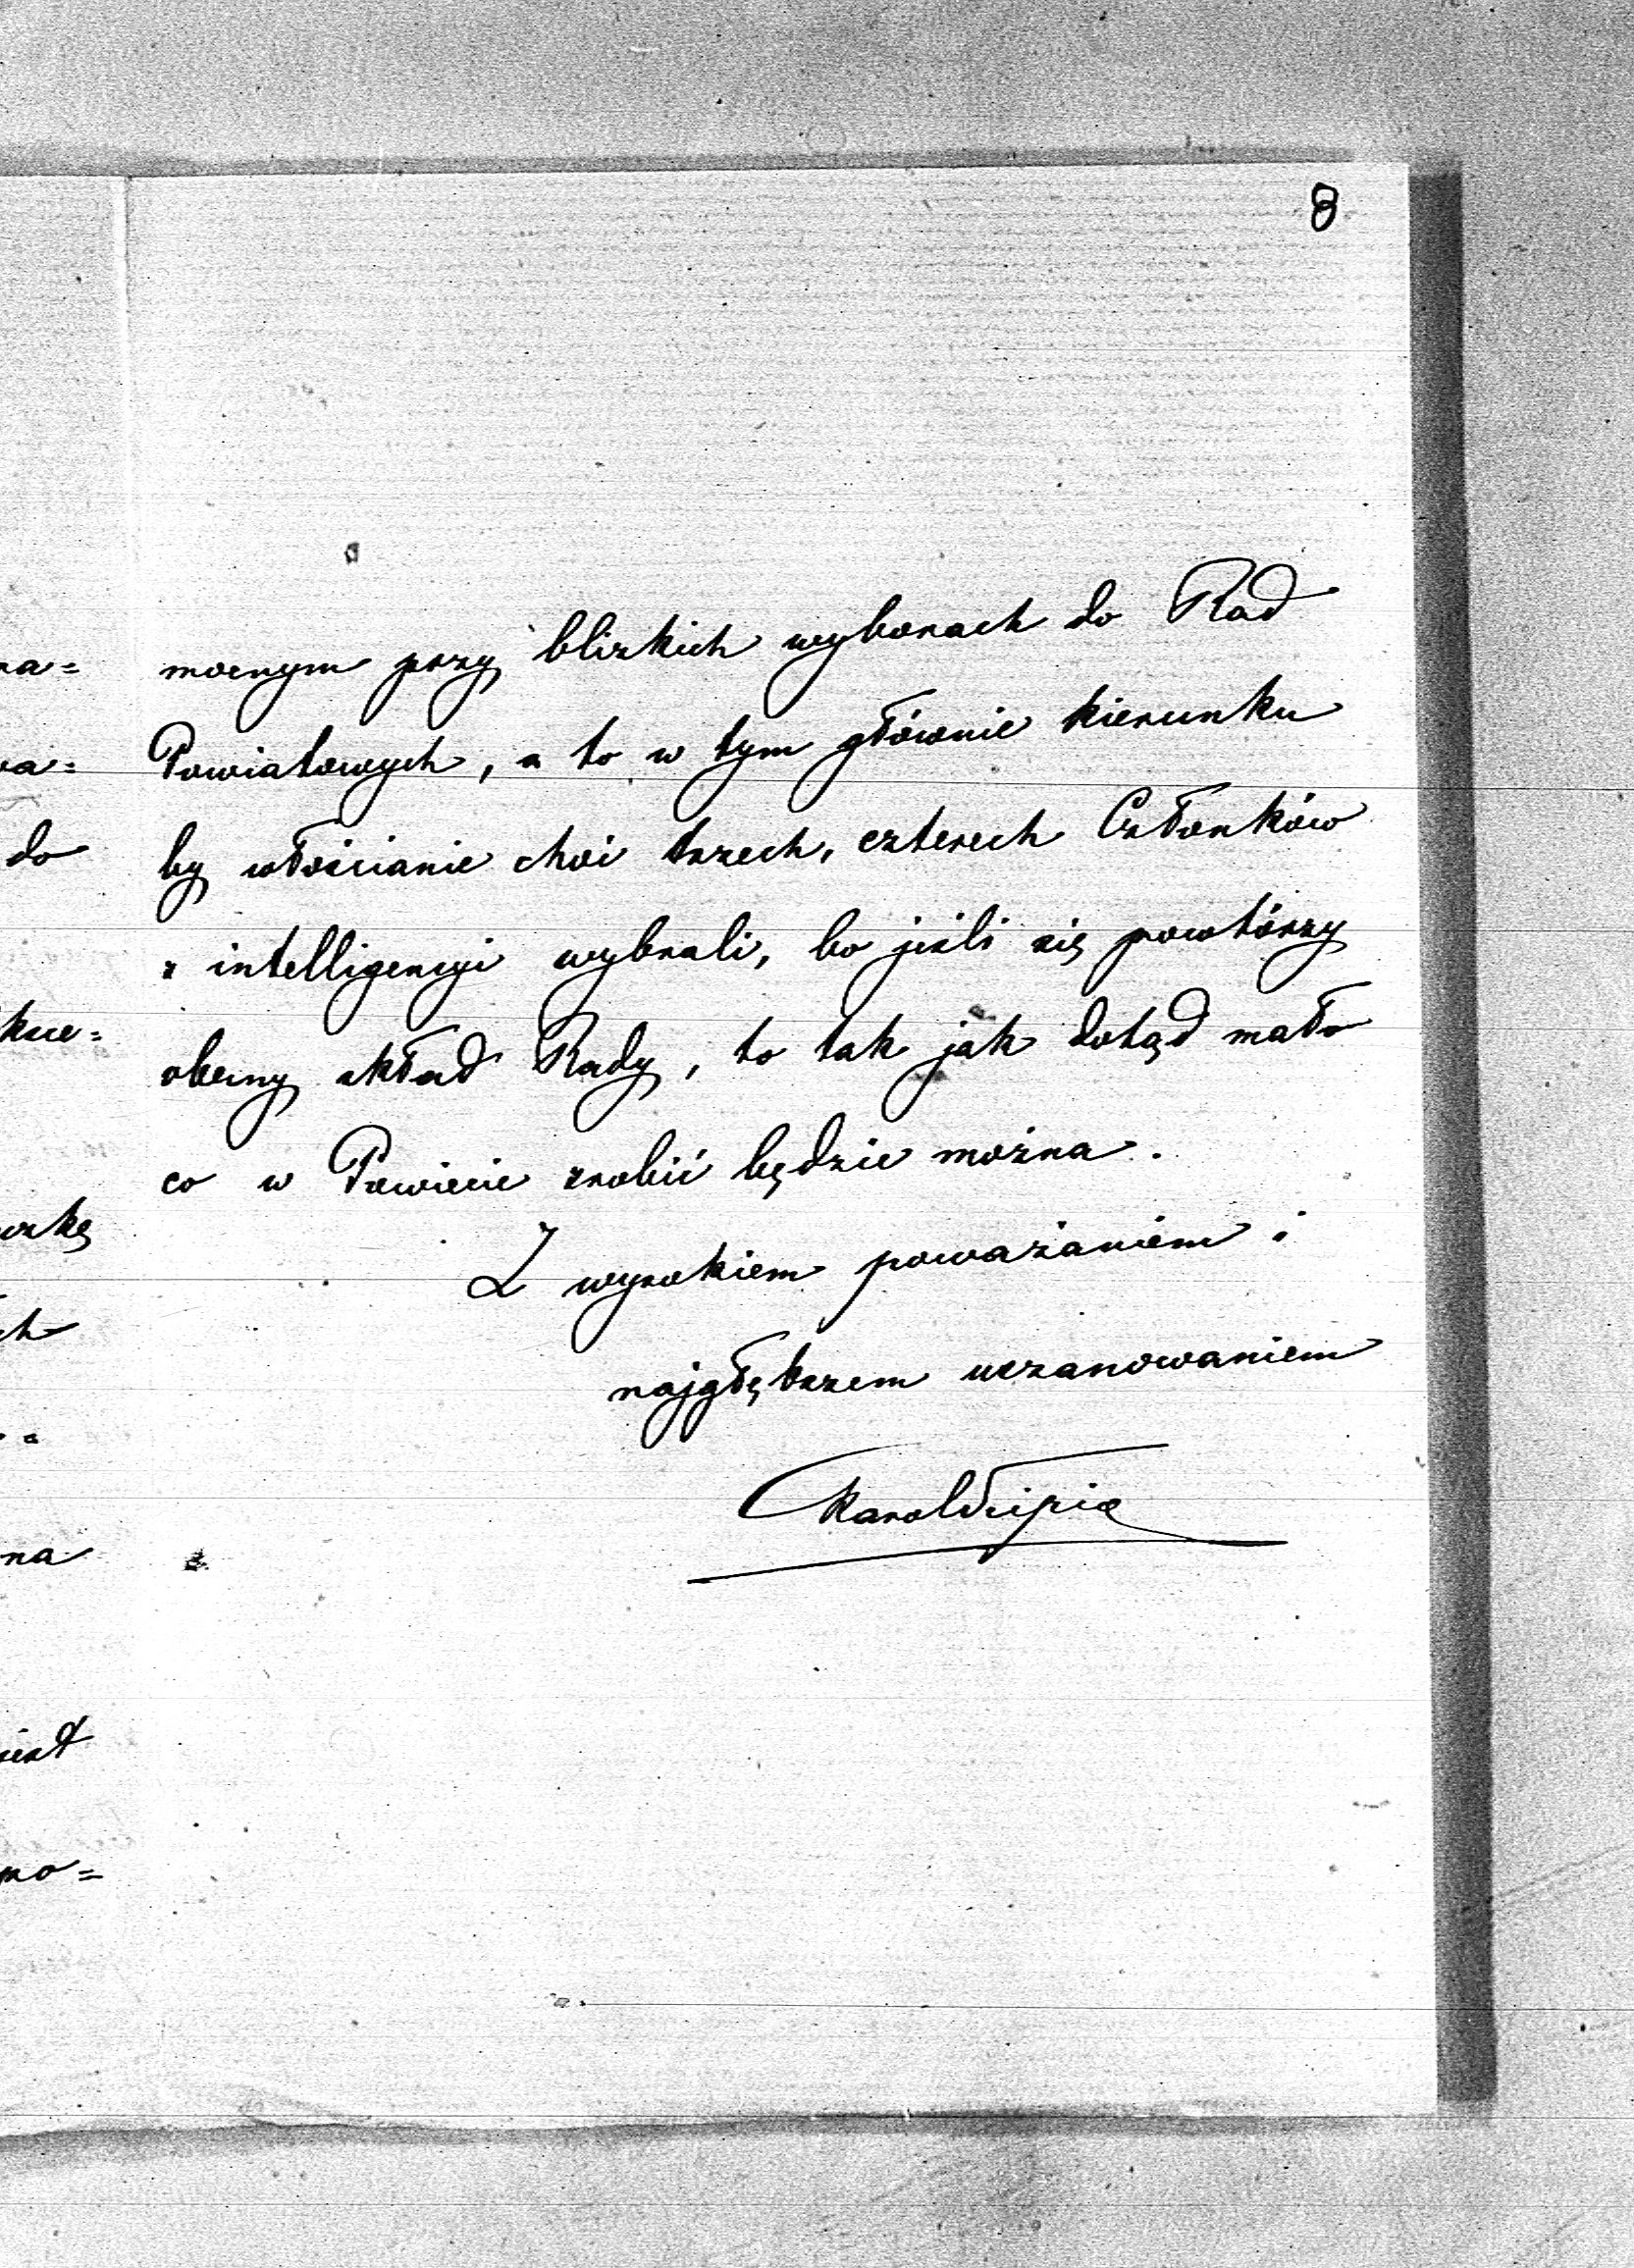 8
mocnym przy blizkich wyborach do Rad
Powiatowych, a to w tym głównie kierunku
by włościanie choć trzech, czterech Członków
z intelligencyi wybrali, bo jeśli się powtórzy
obecny skład Rady, to tak jak dotąd mało
co w Powiecie zrobić będzie można.
Z wysokiem poważaniem i
najgłębszem uszanowaniem
Karol
na=
do
na